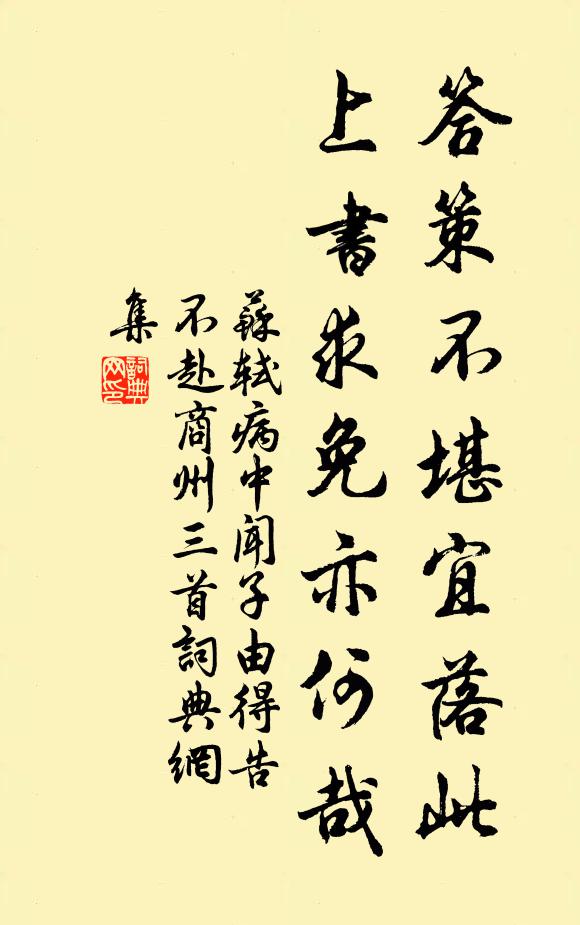 答策不堪宜落此
上書求免亦何哉
蘇軾病中聞子由得告
不赴商州三首詞典網
集
詞典
网印